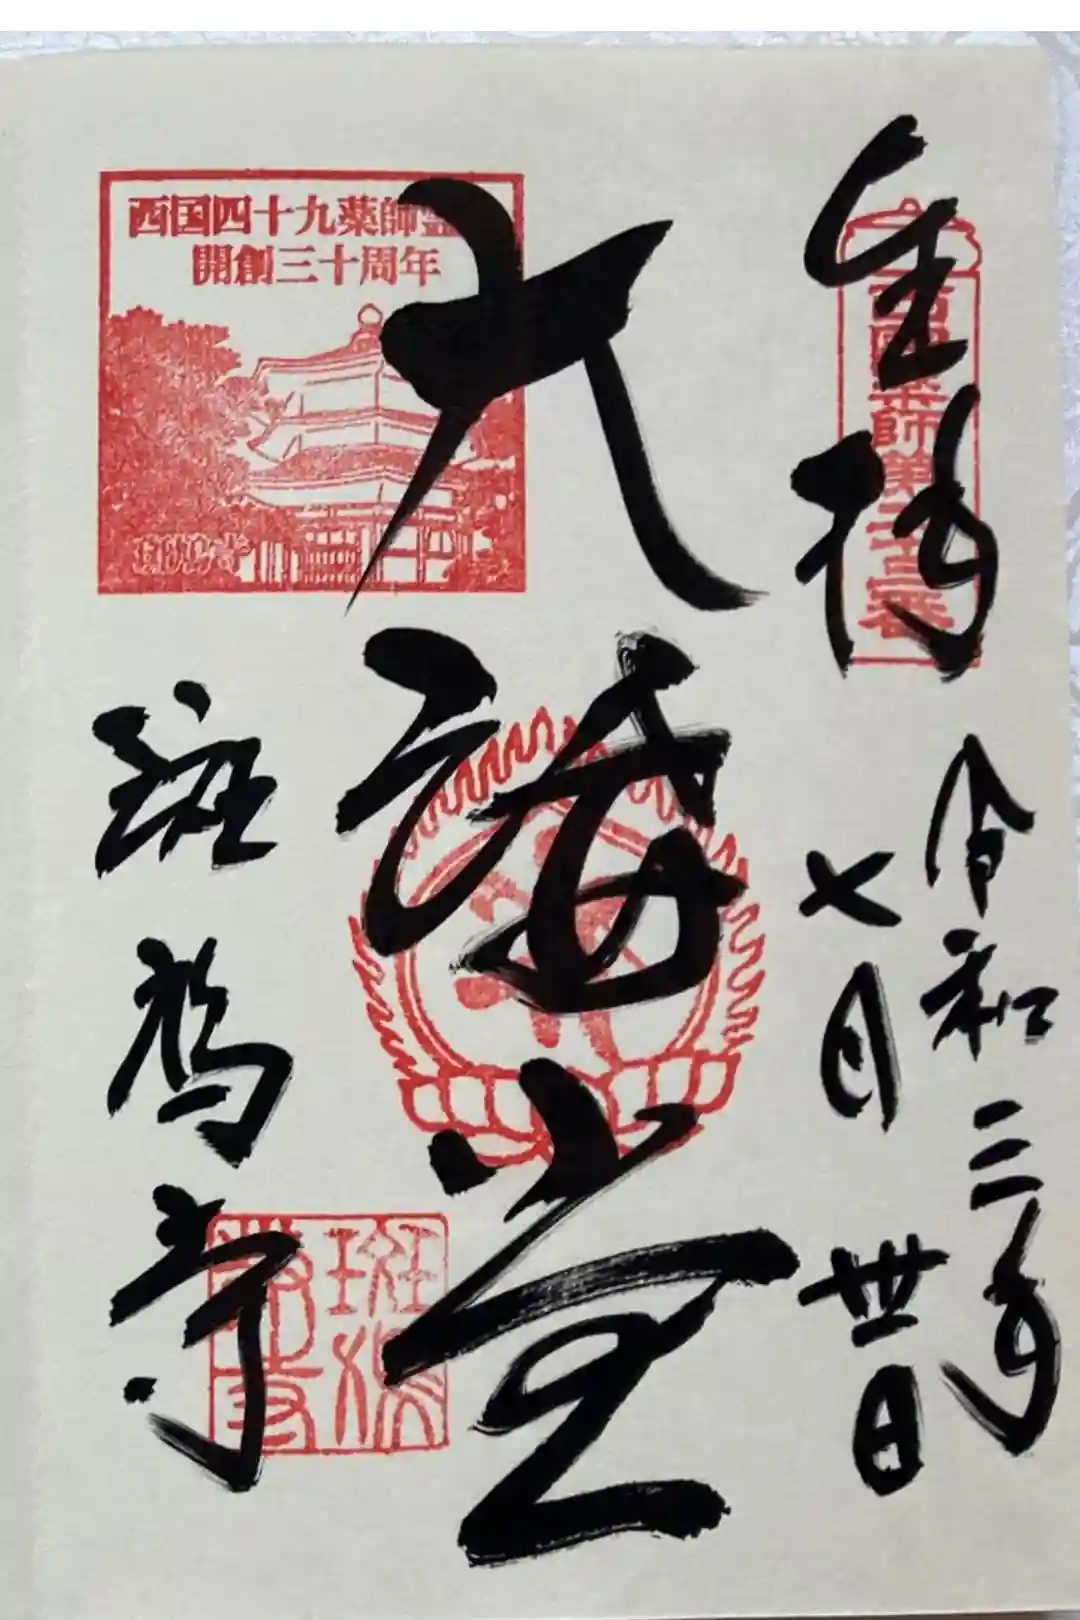 奉拝
西國薬師第二十三番
令和三年
七月丗日
西国四十九薬師霊
開創三十周年
斑鳩寺
大講堂
斑鳩寺